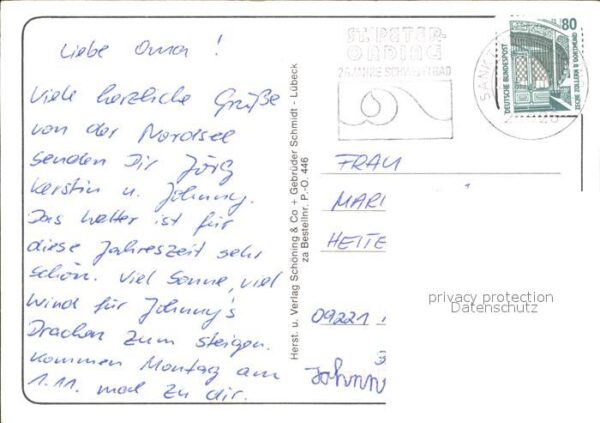 Liebe Oma!
Viele herzliche Grüße
von der Nordsee
senden Dir Jörg
Kerstin u. Johnny.
Das Wetter ist für
diese Jahreszeit sehr
schön. Viel Sonne, viel
Wind für Johnny's
Drachen zum steigen.
Kommen Montag am
1.11. mal zu dir.
Herst. u. Verlag Schöning & Co + Gebrüder Schmidt - Lübeck
za Bestellnr. P.-O. 446
ST. PETER-
ORDING
25 JAHRE
80
DEUTSCHE BUNDESPOST
ZOLLERN II DORTMUND
SANK
FRAU
MARI
HETTE
09221
Johnn
privacy protection
Datenschutz